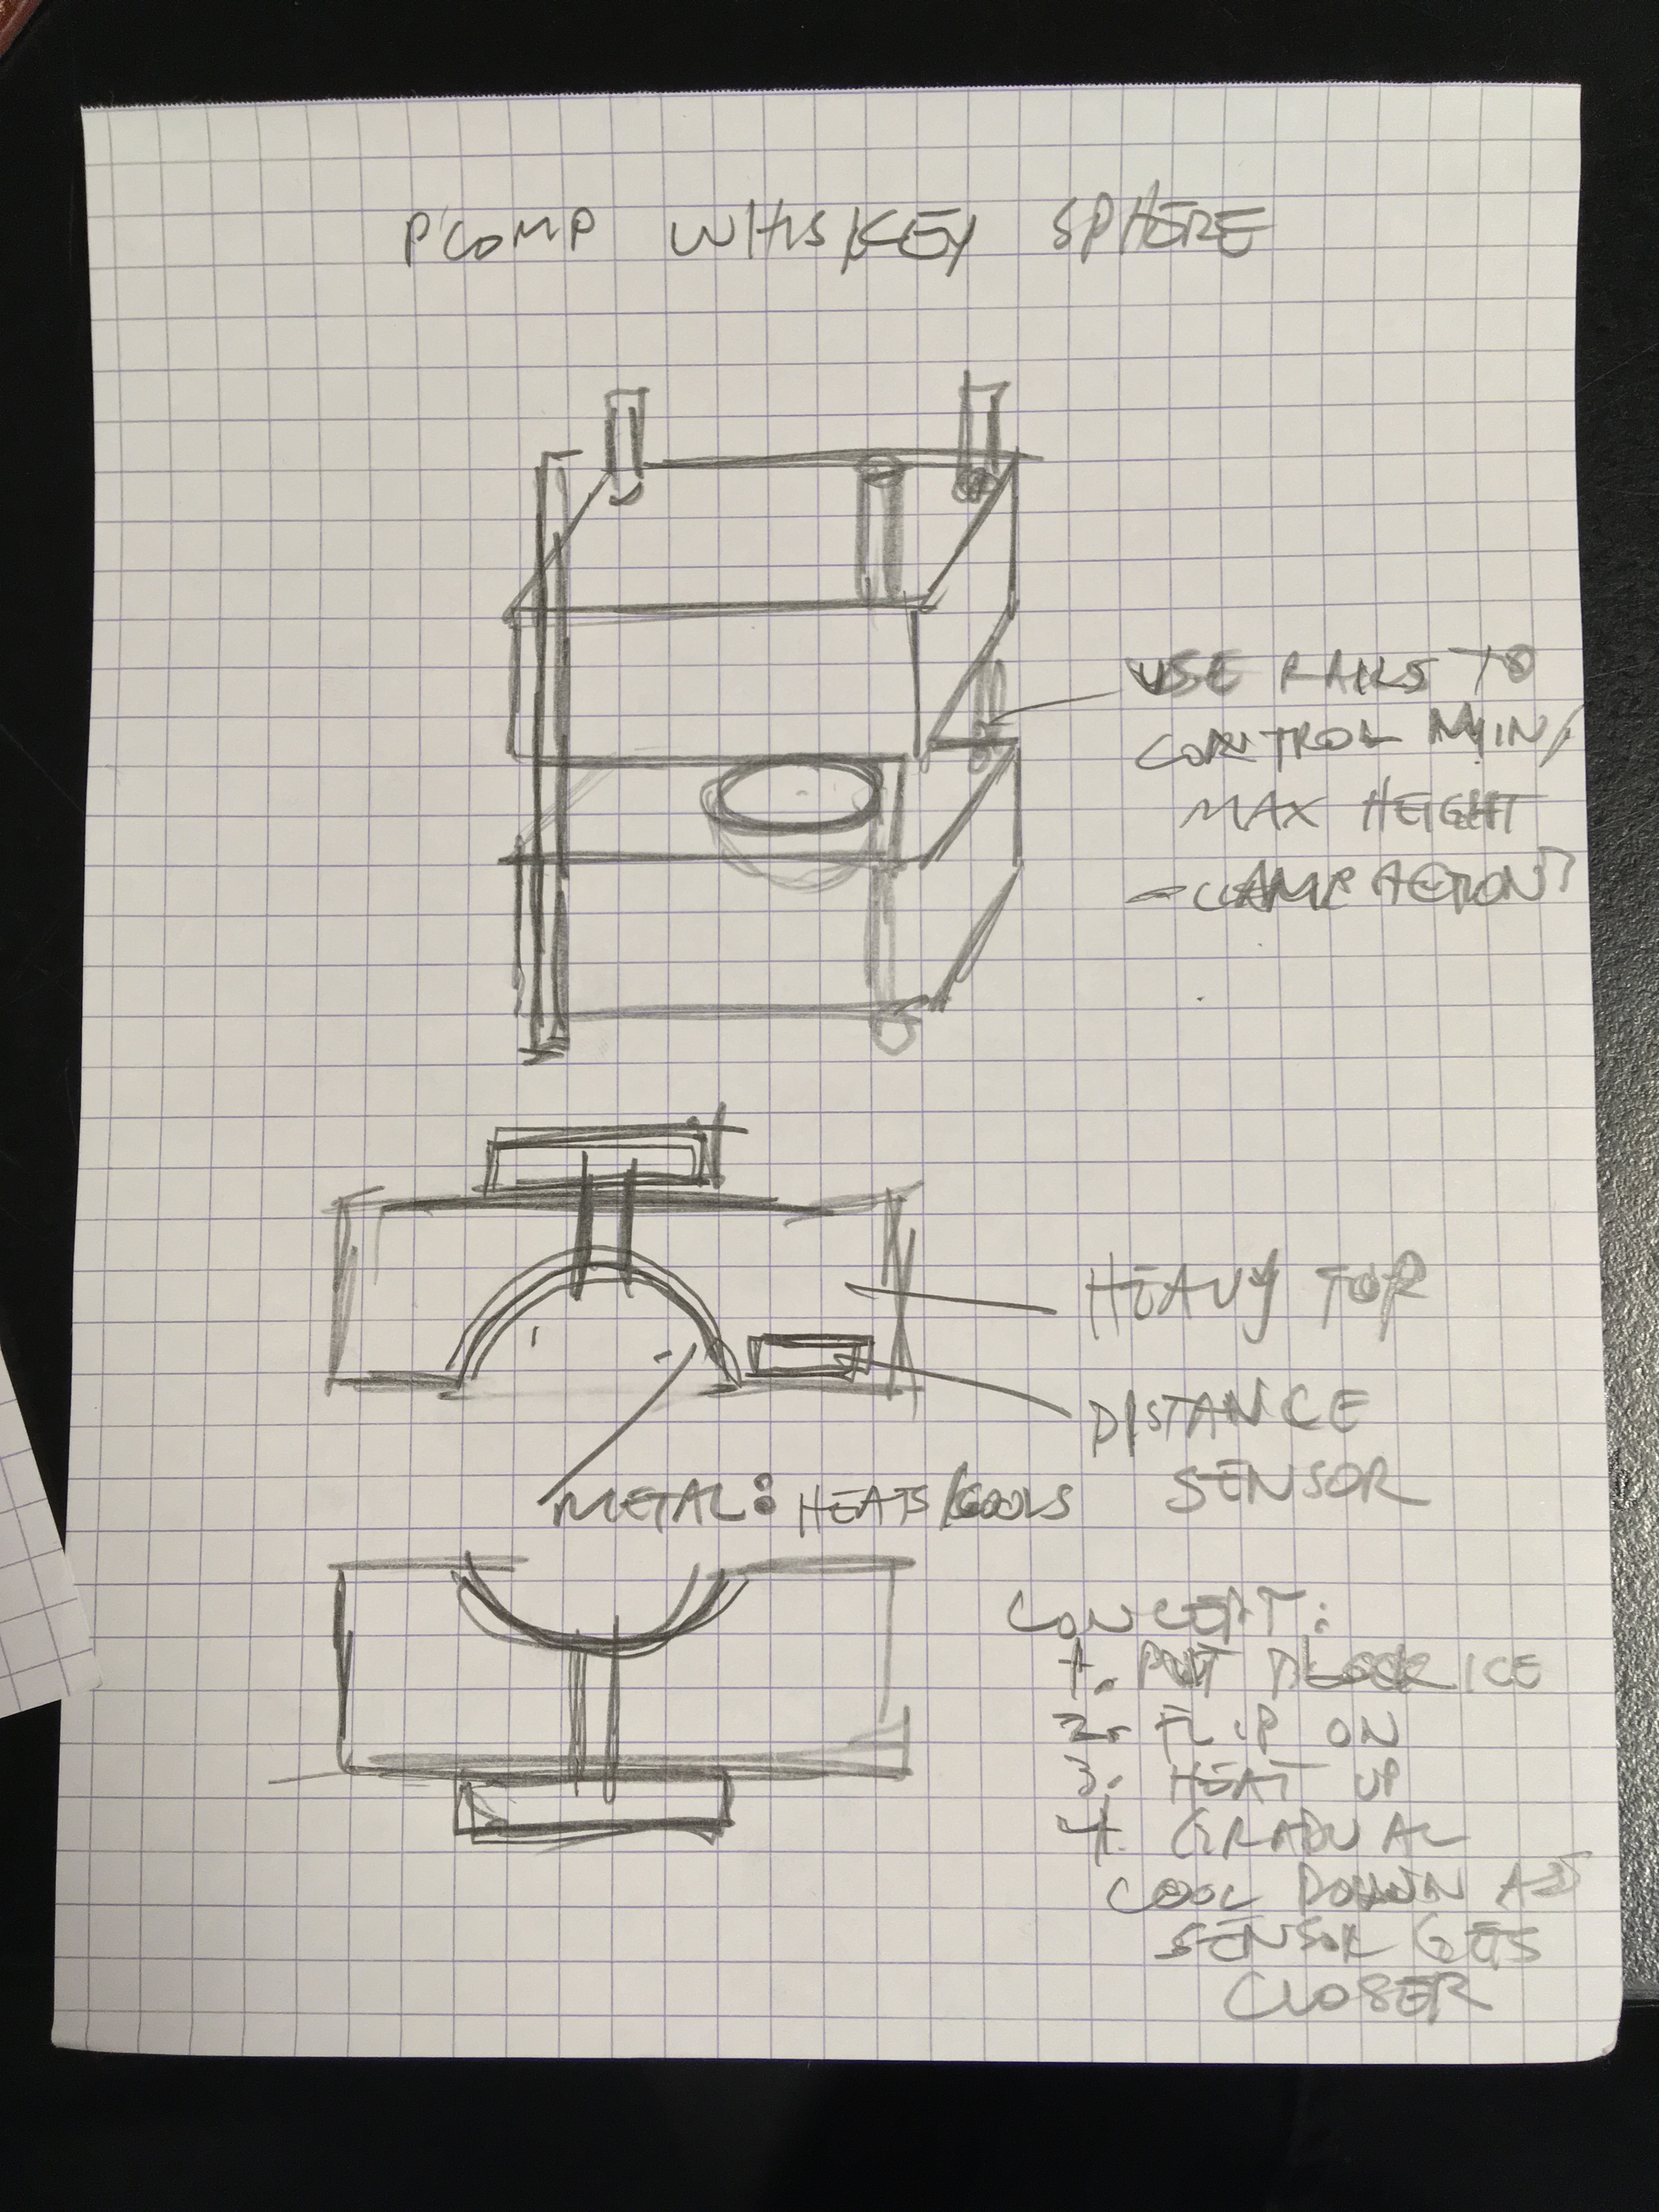 PCOMP WHISKEY SPHERE
USE RAILS TO
CONTROL MIN/
MAX HEIGHT
- CLAMP ACTION?
HEAVY TOP
DISTANCE
SENSOR
METAL: HEATS/COOLS
CONCEPT:
1. PUT BLOCK ICE
2. FLIP ON
3. HEAT UP
4. GRADUAL
COOL DOWN AS
SENSOR GETS
CLOSER